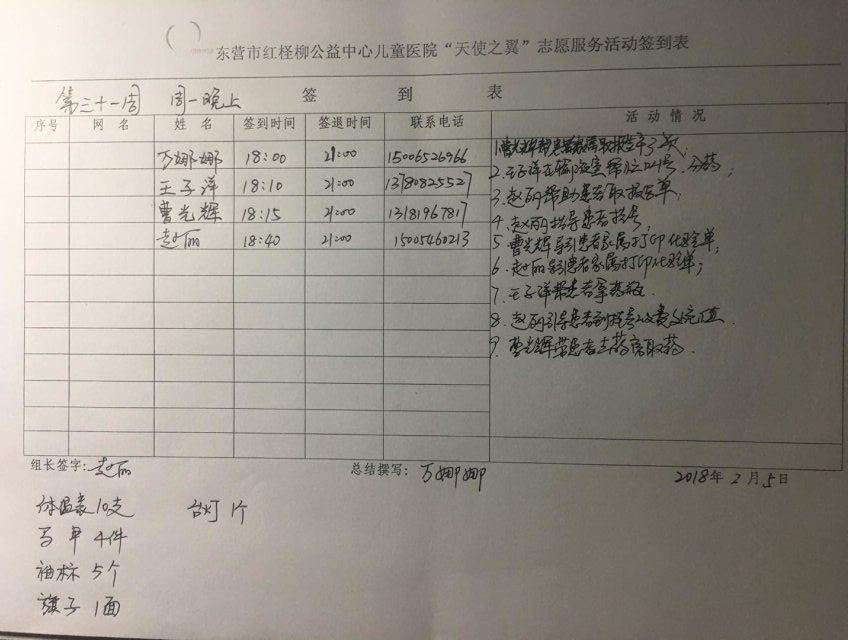 东营市红柽柳公益中心儿童医院“天使之翼”志愿服务活动签到表
第三十一周 周一晚上 签到表
序号 网名 姓名 签到时间 签退时间 联系电话 活动情况
万娜娜 18:00 21:00 15006526966
王子洋 18:10 21:00 13780825527
曹光辉 18:15 21:00 13181967817
赵丽 18:40 21:00 15005460213
1.曹光辉帮患者家属取报告单了2次;
2.王子洋在输液室帮忙叫号、分药;
3.赵丽帮助患者取报告单;
4.赵丽指导患者挂号;
5.曹光辉导引患者家属打印化验单;
6.赵丽导引患者家属打印化验单;
7.王子洋帮患者拿药瓶.
8.赵丽引导患者到挂号收费处充值.
9.曹光辉带患者去药房取药.
组长签字:赵丽 总结撰写:万娜娜 2018年2月5日
体温表10支 台灯1个
马甲4件
袖标5个
旗子1面